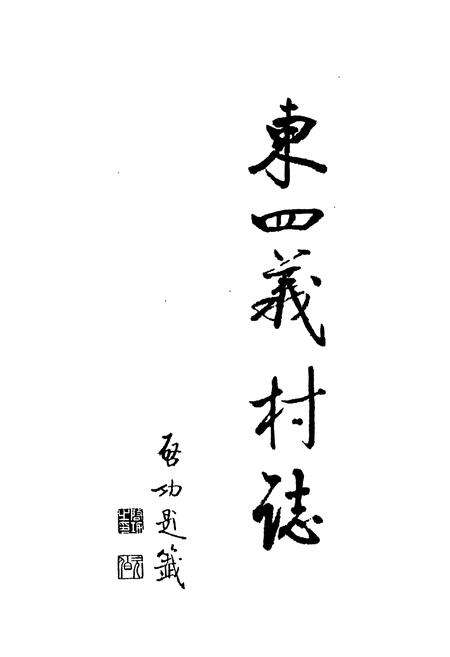 東四義村誌
啓功題籤